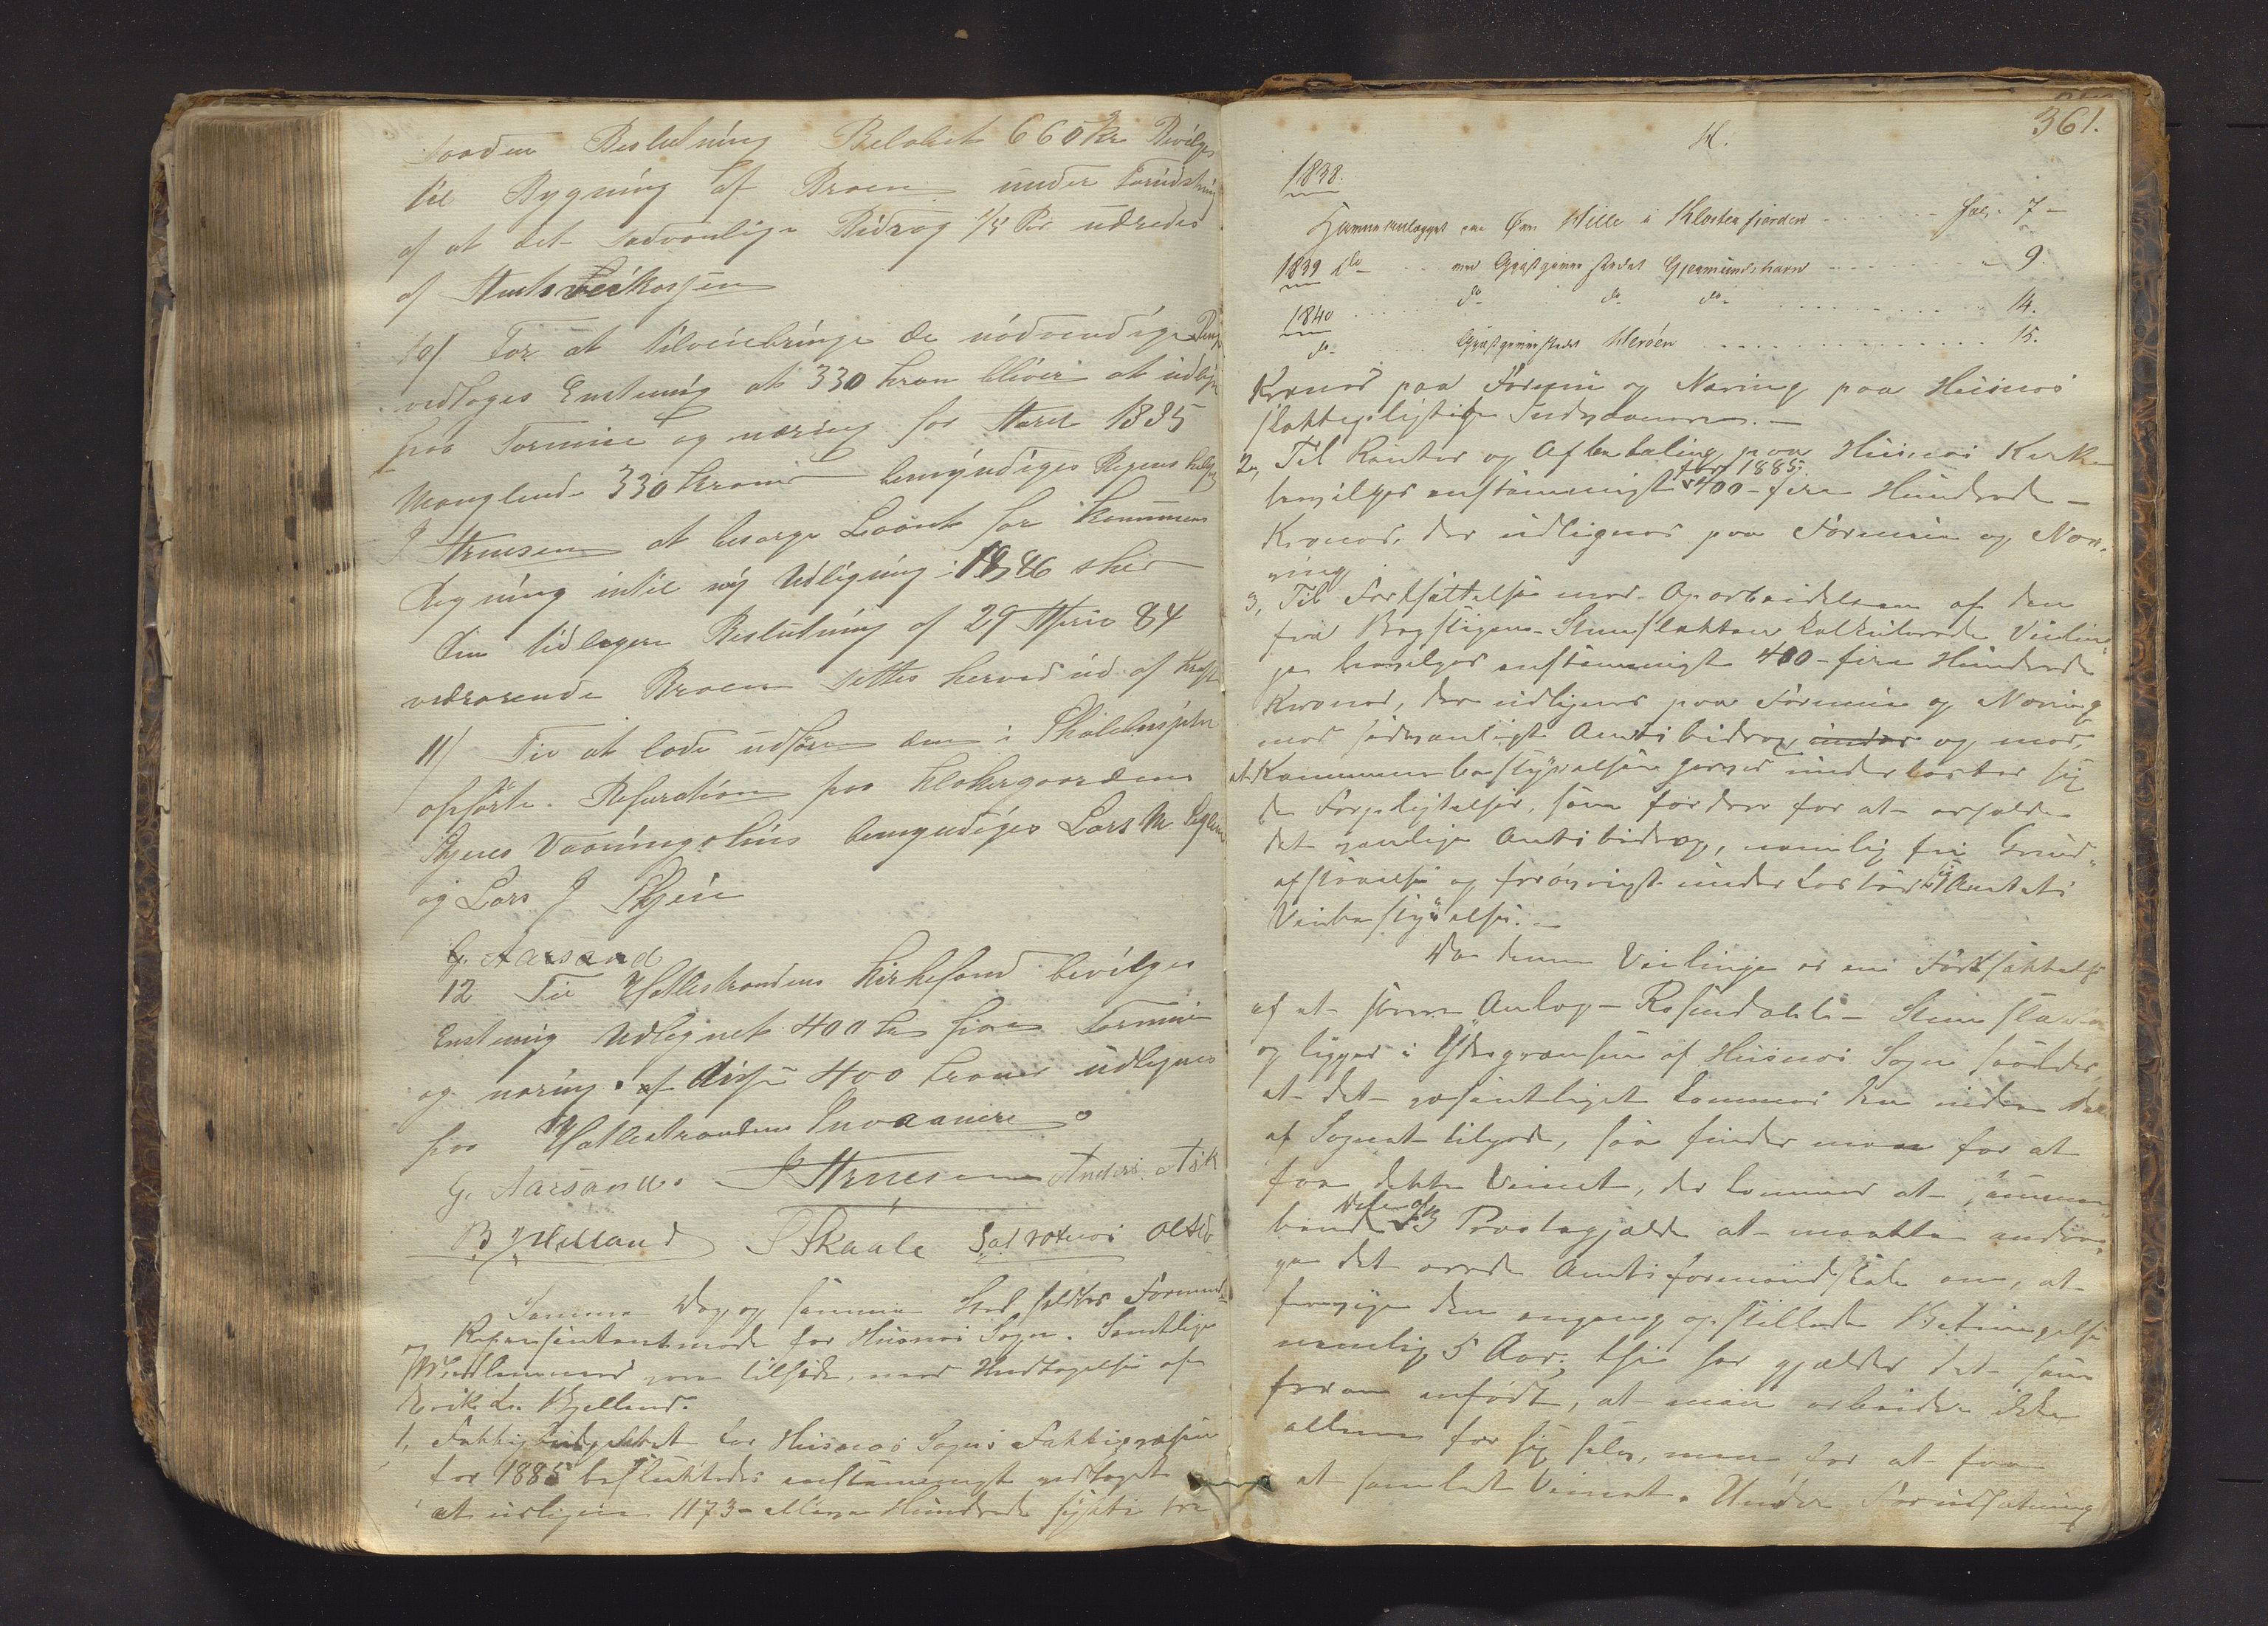 saadan Beslutning Beløbet 660 Kr Bevilges
til Bygning af Broen under Forudsætning
af at det sædvanlige Bidrag 1/4 Par udredes
af Amtsveikassen
10/ For at tilveiebringe de nødvendige Penge
vedtoges Enstemig at 330 kron bliver at udligne
paa Formue og næring for Aaret 1885
Manglende 330 Kroner bemyndiges
J Arnesen at besørge Laant for Kommunens
Regning intil ny Udligning i 1886 sker
Den tidligere Beslutning af 29 April 84
vedrørende Broen settes herved ud af kraft
11/ Til at lade udføre den i
opførte Reperation paa Klokergaardens
Skjenes Vaaningshus bemyndiges Lars M
og Lars J Skjeie
G. Aarsand
12 Til Hatlestrandens Kirkefond bevilges
Enstemig Udlignet 400 kr paa Formue
og næring af disse 400 kroner udlignes
paa Hatlestrandens Invaanere
G. Aarsand. J Arnesen Anders Ask
B J Helland S Skaale
Samme Dag og samme Sted holdtes Formand-
og Repræsentantmøde for Husnæs Sogn. Samtlige
Medlemmer vare tilstede, med Undtagelse af
Erik L. Kjelland.
1, Fattigbudgettet for Husnæs Sogns Fattigvæsen
for 1885 besluttedes enstemmigt vedtaget
at udligne 1173 - elleve Hundrede sytti tre
361.
H.
1838.
Havneanlægget paa Øen Hille i Klosterfjorden - - - - fol. 7 -
1839 do - - ved Gjæstgiverstedet Gjermundshavn - - - - " 9.
1840 . . . do do do . . . . 14.
do . . . Gjæstgiverstedet Herøen . . . . 15.
Kroner paa Formue og Næring paa Husnæs
skattepligtige Indvaanere. -
2, Til Renter og Afbetaling paa Husnæs Kirke
for 1885.
bevilges enstemmigt 400 - fire Hundrede -
Kroner, der udlignes paa Formue og Nær-
ing
3, Til Fortsættelse med Oparbeidelsen af den
fra Bogstigen - Skeieslatten kalkulerede Veilin-
je bevilges enstemmigt 400 - fire Hundrede
Kroner, der udlignes paa Formue og Næring
mod sædvanligt Amtsbidrag under og mod,
at Kommunebestyrelsen herved underkaster sig
de Forpligtelser, som fordres for at erholde
det vanlige Amtsbidrag, nemlig fri Grund-
afstaaelse og forøvrigt underkaster sig Amtets
Veibestyrelse. -
Da denne Veilinje er en Fortsættelse
af et større Anlæg - Rosendahl -
og ligger i Ydergrænsen af Husnæs Sogn saaledes
at det væsentligst kommer den indre Del
af Sognet tilgode, saa finder man for at
faa dette Veinet, der kommer at sammen-
binde Dele af 3 Præstegjælde at maatte andra-
ge det ærede Amtsformandskab om, at
fravige den engang opstillede Betingelse
nemlig 5 Aar; thi her gjælder det som
foran anført, at man arbeider ikke
allene for sig selv, men for at faa
et samlet Veinet. Under Forudsætning